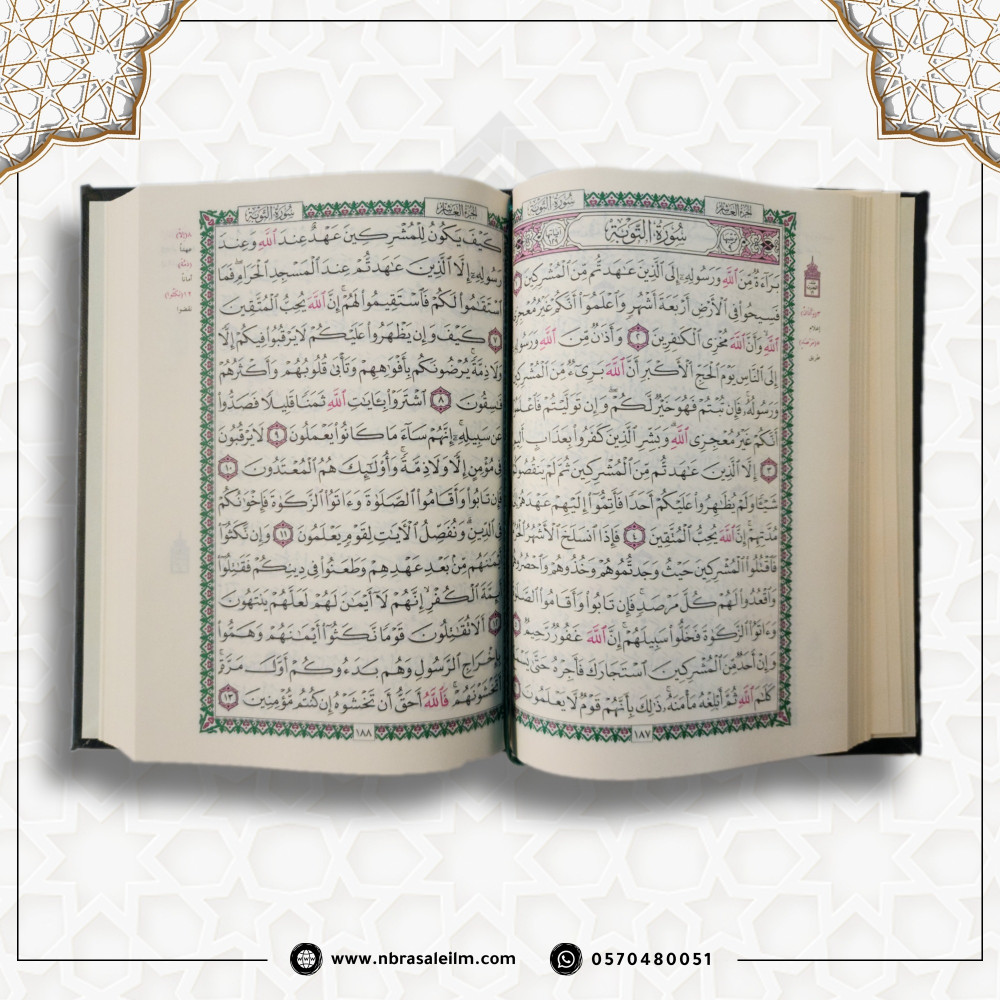 سُورَةُ التَّوْبَةِ
الجُزْءُ العَاشِرُ
سُورَةُ التَّوْبَةِ
بَرَآءَةٌ مِّنَ ٱللَّهِ وَرَسُولِهِۦٓ إِلَى ٱلَّذِينَ عَٰهَدتُّم مِّنَ ٱلْمُشْرِكِينَ
فَسِيحُوا۟ فِى ٱلْأَرْضِ أَرْبَعَةَ أَشْهُرٍ وَٱعْلَمُوٓا۟ أَنَّكُمْ غَيْرُ مُعْجِزِى
ٱللَّهِ ۙ وَأَنَّ ٱللَّهَ مُخْزِى ٱلْكَٰفِرِينَ ٢ وَأَذَٰنٌ مِّنَ ٱللَّهِ وَرَسُولِهِ
إِلَى ٱلنَّاسِ يَوْمَ ٱلْحَجِّ ٱلْأَكْبَرِ أَنَّ ٱللَّهَ بَرِىٓءٌ مِّنَ ٱلْمُشْرِكِينَ
وَرَسُولُهُۥ ۚ فَإِن تُبْتُمْ فَهُوَ خَيْرٌ لَّكُمْ ۖ وَإِن تَوَلَّيْتُمْ فَٱعْلَمُو
أَنَّكُمْ غَيْرُ مُعْجِزِى ٱللَّهِ ۗ وَبَشِّرِ ٱلَّذِينَ كَفَرُوا۟ بِعَذَابٍ أَلِيمٍ
٣ إِلَّا ٱلَّذِينَ عَٰهَدتُّم مِّنَ ٱلْمُشْرِكِينَ ثُمَّ لَمْ يَنقُصُوكُ
شَيْـًٔا وَلَمْ يُظَٰهِرُوا۟ عَلَيْكُمْ أَحَدًا فَأَتِمُّوٓا۟ إِلَيْهِمْ عَهْدَهُمْ
مُدَّتِهِمْ ۚ إِنَّ ٱللَّهَ يُحِبُّ ٱلْمُتَّقِينَ ٤ فَإِذَا ٱنسَلَخَ ٱلْأَشْهُرُ
فَٱقْتُلُوا۟ ٱلْمُشْرِكِينَ حَيْثُ وَجَدتُّمُوهُمْ وَخُذُوهُمْ وَٱحْصُرُوهُ
وَٱقْعُدُوا۟ لَهُمْ كُلَّ مَرْصَدٍ ۚ فَإِن تَابُوا۟ وَأَقَامُوا۟ ٱلصَّلَ
وَءَاتَوُا۟ ٱلزَّكَوٰةَ فَخَلُّوا۟ سَبِيلَهُمْ ۚ إِنَّ ٱللَّهَ غَفُورٌ رَّحِيمٌ
وَإِنْ أَحَدٌ مِّنَ ٱلْمُشْرِكِينَ ٱسْتَجَارَكَ فَأَجِرْهُ حَتَّىٰ يَسْمَ
كَلَٰمَ ٱللَّهِ ثُمَّ أَبْلِغْهُ مَأْمَنَهُۥ ۚ ذَٰلِكَ بِأَنَّهُمْ قَوْمٌ لَّا يَعْلَمُونَ
١٨٧
سُورَةُ التَّوْبَةِ
الجُزْءُ العَاشِرُ
كَيْفَ يَكُونُ لِلْمُشْرِكِينَ عَهْدٌ عِندَ ٱللَّهِ وَعِندَ
رَسُولِهِۦٓ إِلَّا ٱلَّذِينَ عَٰهَدتُّمْ عِندَ ٱلْمَسْجِدِ ٱلْحَرَامِ ۖ فَمَا
ٱسْتَقَٰمُوا۟ لَكُمْ فَٱسْتَقِيمُوا۟ لَهُمْ ۚ إِنَّ ٱللَّهَ يُحِبُّ ٱلْمُتَّقِينَ
٧ كَيْفَ وَإِن يَظْهَرُوا۟ عَلَيْكُمْ لَا يَرْقُبُوا۟ فِيكُمْ إِلًّا
وَلَا ذِمَّةً ۚ يُرْضُونَكُم بِأَفْوَٰهِهِمْ وَتَأْبَىٰ قُلُوبُهُمْ وَأَكْثَرُهُمْ
فَٰسِقُونَ ٨ ٱشْتَرَوْا۟ بِـَٔايَٰتِ ٱللَّهِ ثَمَنًا قَلِيلًا فَصَدُّوا۟
عَن سَبِيلِهِۦٓ ۚ إِنَّهُمْ سَآءَ مَا كَانُوا۟ يَعْمَلُونَ ٩ لَا يَرْقُبُونَ
فِى مُؤْمِنٍ إِلًّا وَلَا ذِمَّةً ۚ وَأُو۟لَٰٓئِكَ هُمُ ٱلْمُعْتَدُونَ ١٠
فَإِن تَابُوا۟ وَأَقَامُوا۟ ٱلصَّلَوٰةَ وَءَاتَوُا۟ ٱلزَّكَوٰةَ فَإِخْوَٰنُكُمْ
فِى ٱلدِّينِ ۗ وَنُفَصِّلُ ٱلْـَٔايَٰتِ لِقَوْمٍ يَعْلَمُونَ ١١ وَإِن نَّكَثُوٓا۟
أَيْمَٰنَهُم مِّنۢ بَعْدِ عَهْدِهِمْ وَطَعَنُوا۟ فِى دِينِكُمْ فَقَٰتِلُوٓا۟
أَئِمَّةَ ٱلْكُفْرِ ۙ إِنَّهُمْ لَآ أَيْمَٰنَ لَهُمْ لَعَلَّهُمْ يَنتَهُونَ
١٢ أَلَا تُقَٰتِلُونَ قَوْمًا نَّكَثُوٓا۟ أَيْمَٰنَهُمْ وَهَمُّوا۟
بِإِخْرَاجِ ٱلرَّسُولِ وَهُم بَدَءُوكُمْ أَوَّلَ مَرَّةٍ ۚ
أَتَخْشَوْنَهُمْ ۚ فَٱللَّهُ أَحَقُّ أَن تَخْشَوْهُ إِن كُنتُم مُّؤْمِنِينَ ١٣
١٨٨
www.nbrasaleilm.com
0570480051